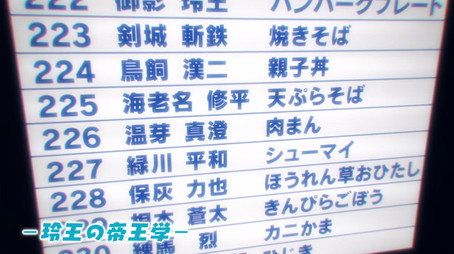 222 御影 玲王 ハンバーグプレート
223 剣城 斬鉄 焼きそば
224 鳥飼 漢二 親子丼
225 海老名 修平 天ぷらそば
226 温芽 真澄 肉まん
227 緑川 平和 シューマイ
228 保灰 力也 ほうれん草おひたし
蒼太 きんぴらごぼう
230 練馬 烈 カニかま
ひじき
－玲王の帝王学－